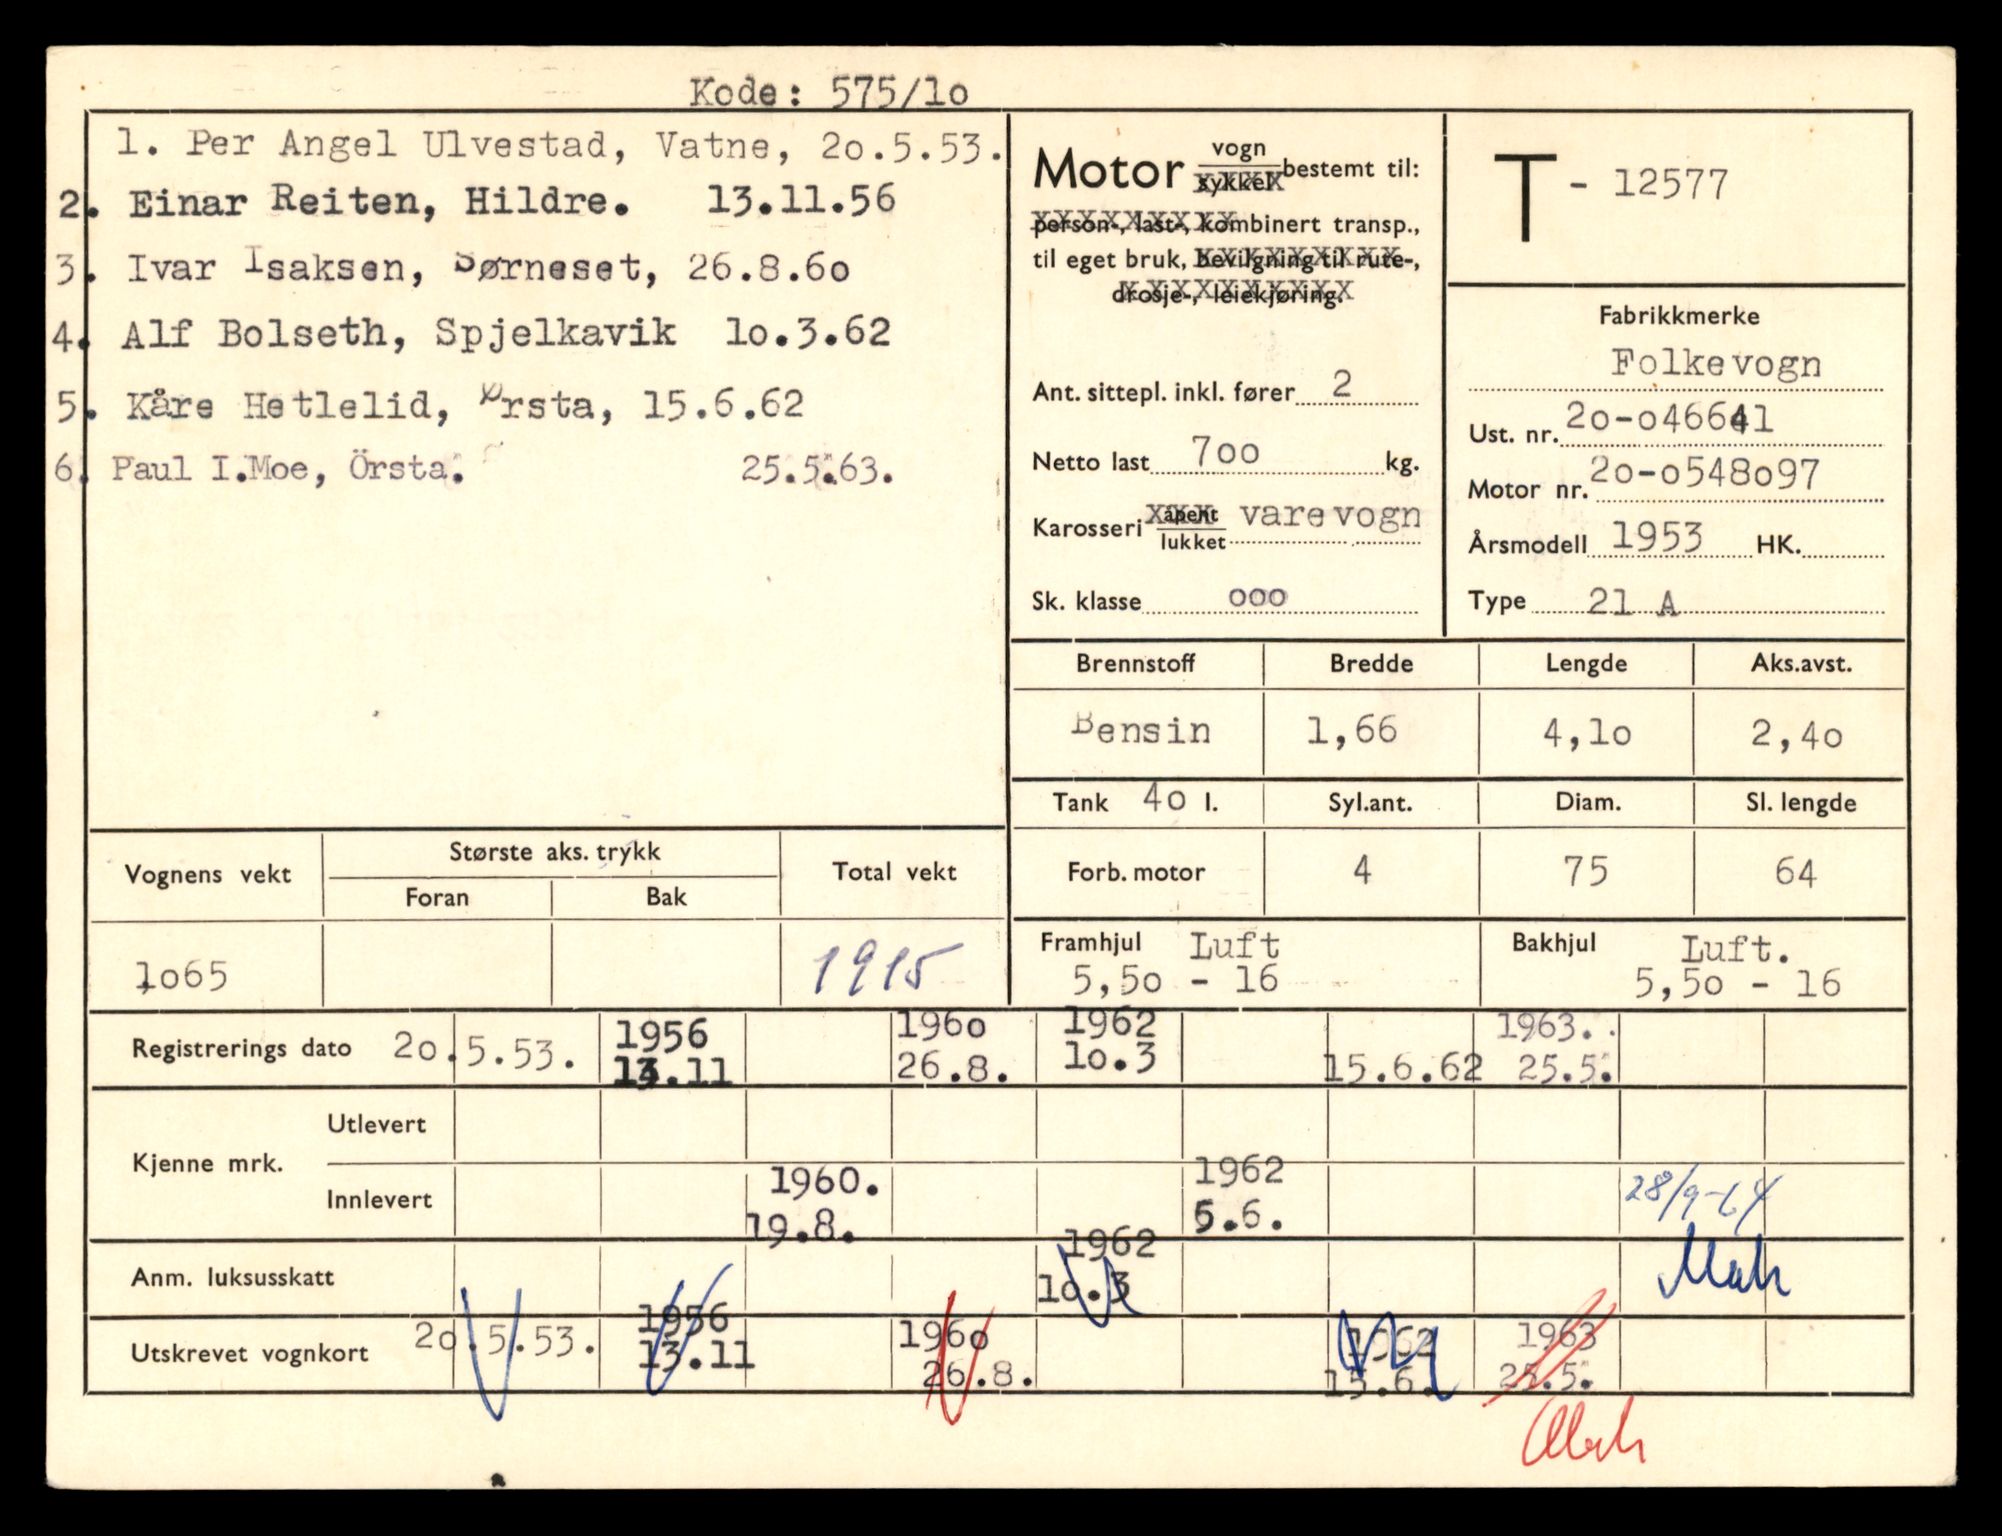 Kode: 575/1o
1. Per Angel Ulvestad, Vatne, 2o.5.53.
2. Einar Reiten, Hildre. 13.11.56
3. Ivar Isaksen, Sørneset, 26.8.6o
4. Alf Bolseth, Spjelkavik 1o.3.62
5. Kåre Hetlelid, Ørsta, 15.6.62
6. Paul I.Moe, Örsta. 25.5.63.
Motor vogn/sykkel bestemt til:
person-, last-, kombinert transp.,
til eget bruk, bevilgning til rute-,
drosje-, leiekjøring.
Ant. sittepl. inkl. fører 2
Netto last 7oo kg.
Karosseri åpent/lukket varevogn
Sk. klasse ooo
T - 12577
Fabrikkmerke
Folkevogn
Ust. nr. 2o-o46641
Motor nr. 2o-o548o97
Årsmodell 1953 HK.
Type 21 A
Brennstoff Bredde Lengde Aks.avst.
Bensin 1,66 4,1o 2,4o
Tank 4o l. Syl.ant. Diam. Sl. lengde
Forb. motor 4 75 64
Framhjul Luft Bakhjul Luft.
5,5o - 16 5,5o - 16
Vognens vekt Største aks. trykk Total vekt
Foran Bak
1o65 1915
1956 196o 1962 1963.
Registrerings dato 2o.5.53. 13.11 26.8. 1o.3 15.6.62 25.5.
Utlevert
Kjenne mrk.
Innlevert 1960. 1962 28/9-64
19.8. 5.6.
Anm. luksusskatt 1962
1o.3
1956 196o 1962 1963
Utskrevet vognkort 2o.5.53. 13.11 26.8. 15.6. 25.5.